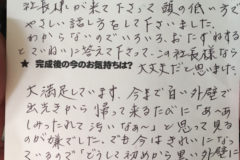 社長様が来て下さって頭の低い方で
やさしい話し方をして下さいました。
わからないのでいろいろおたずねする
とていねいに答えて下さって、この社長様なら
★ 完成後の今のお気持ちは? 大丈夫だと思いました。
大満足しています。今まで白い外壁で
出先から帰って来るたびに「あ〜あ
しみったれて汚いなぁ〜」と思って見る
のが嫌でした。でも今はきれいになっ
ているので"どうして初めから思い外壁に